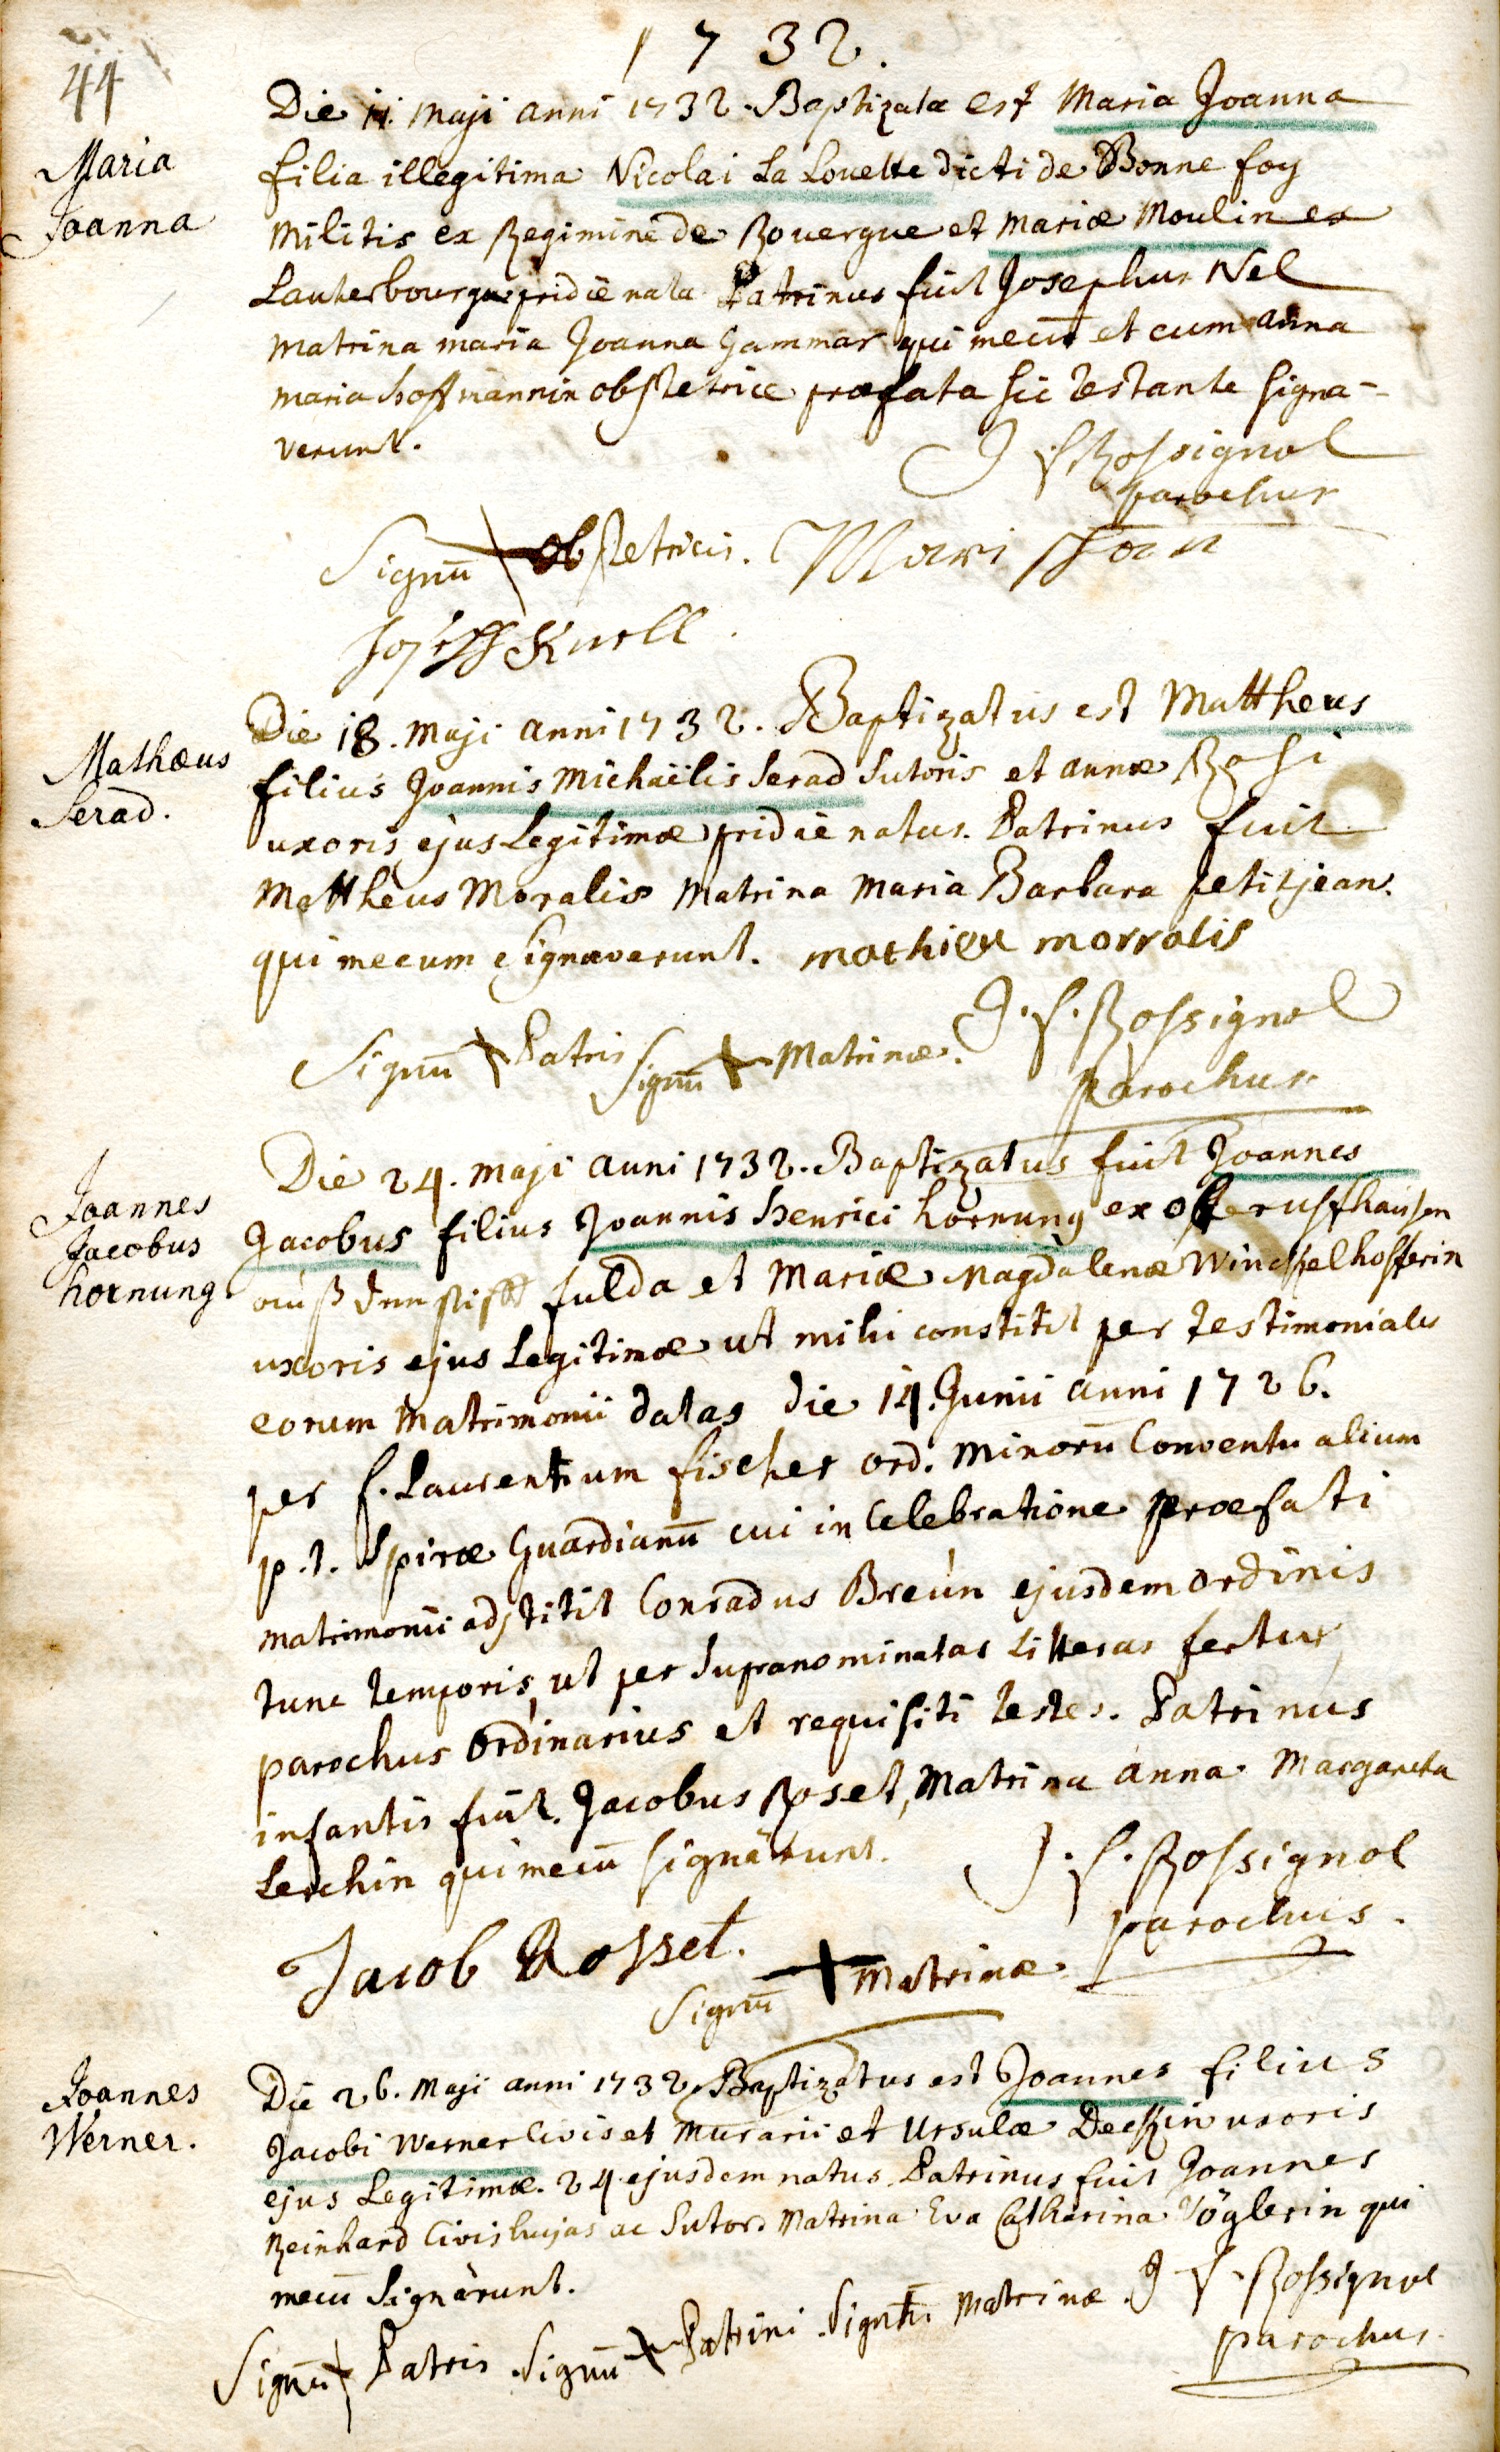 1732.
44
Die 11. Maji anni 1732. Baptizata est Maria Joanna
Maria
Joanna
filia illegitima Nicolai La Louette dicti de Bonne foy
Militis ex Regimine de Rouergue et Mariæ Moulin ex
Lauterbourg pridie nata Patrinus fuit Josephus Nel
Matrina maria Joanna Gammar qui mecū et cum anna
maria hoffmännin obstetrice præfata sic testante signa-
verunt.
J f Rossignol
parochus
Signū obstetricis. Mari Joan
Joseff Knell.
Die 18. Maji anni 1732. Baptizatus est Mattheus
Mathæus
Serad.
filius Joannis Michaëlis Serad Sutoris et annæ Rosi
uxoris ejus Legitimæ pridie natus. Patrinus fuit
Mattheus Moralis Matrina Maria Barbara petitjean.
qui mecum signaverunt. mathieu morralis
J. f. Rossignol
Signū Patris Signū Matrinæ.
parochus
Die 24. Maji anni 1732. Baptizatus fuit Joannes
Joannes
Jacobus
hornung
Jacobus filius Joannis Henrici hornung ex
auß dem stifft fulda et Mariæ Magdalenæ Winckelhofferin
uxoris ejus Legitimæ ut mihi constitit per testimoniales
eorum Matrimonii datas die 14. Junii anni 1726.
per f. Laurentium fischer ord. Minorū Conventualium
p.t. Spiræ Guardianū cui in Celebratione præfati
matrimonii adstitit Conradus Breün ejusdem ordinis
tunc temporis, ut per supranominatas Litteras fertur,
parochus ordinarius et requisiti testes. Patrinus
infantis fuit Jacobus Roset, Matrina anna Margareta
Lerchin qui mecū signârunt.
J. f. Rossignol
parochus.
Jacob Rosset.
Signū Matrinæ
Die 26. Maji anni 1732. Baptizatus est Joannes filius
Joannes
Werner.
Jacobi Werner Civis et Murarii et Ursulæ Deckin uxoris
ejus Legitimæ. 24 ejusdem natus Patrinus fuit Joannes
Reinhard Civis hujas ac Sutor. Matrina Eva Catharina Vöglerin qui
mecū signârunt.
J f. Rossignol
parochus.
Signū Patris Signū Patrini Signū Matrinæ.